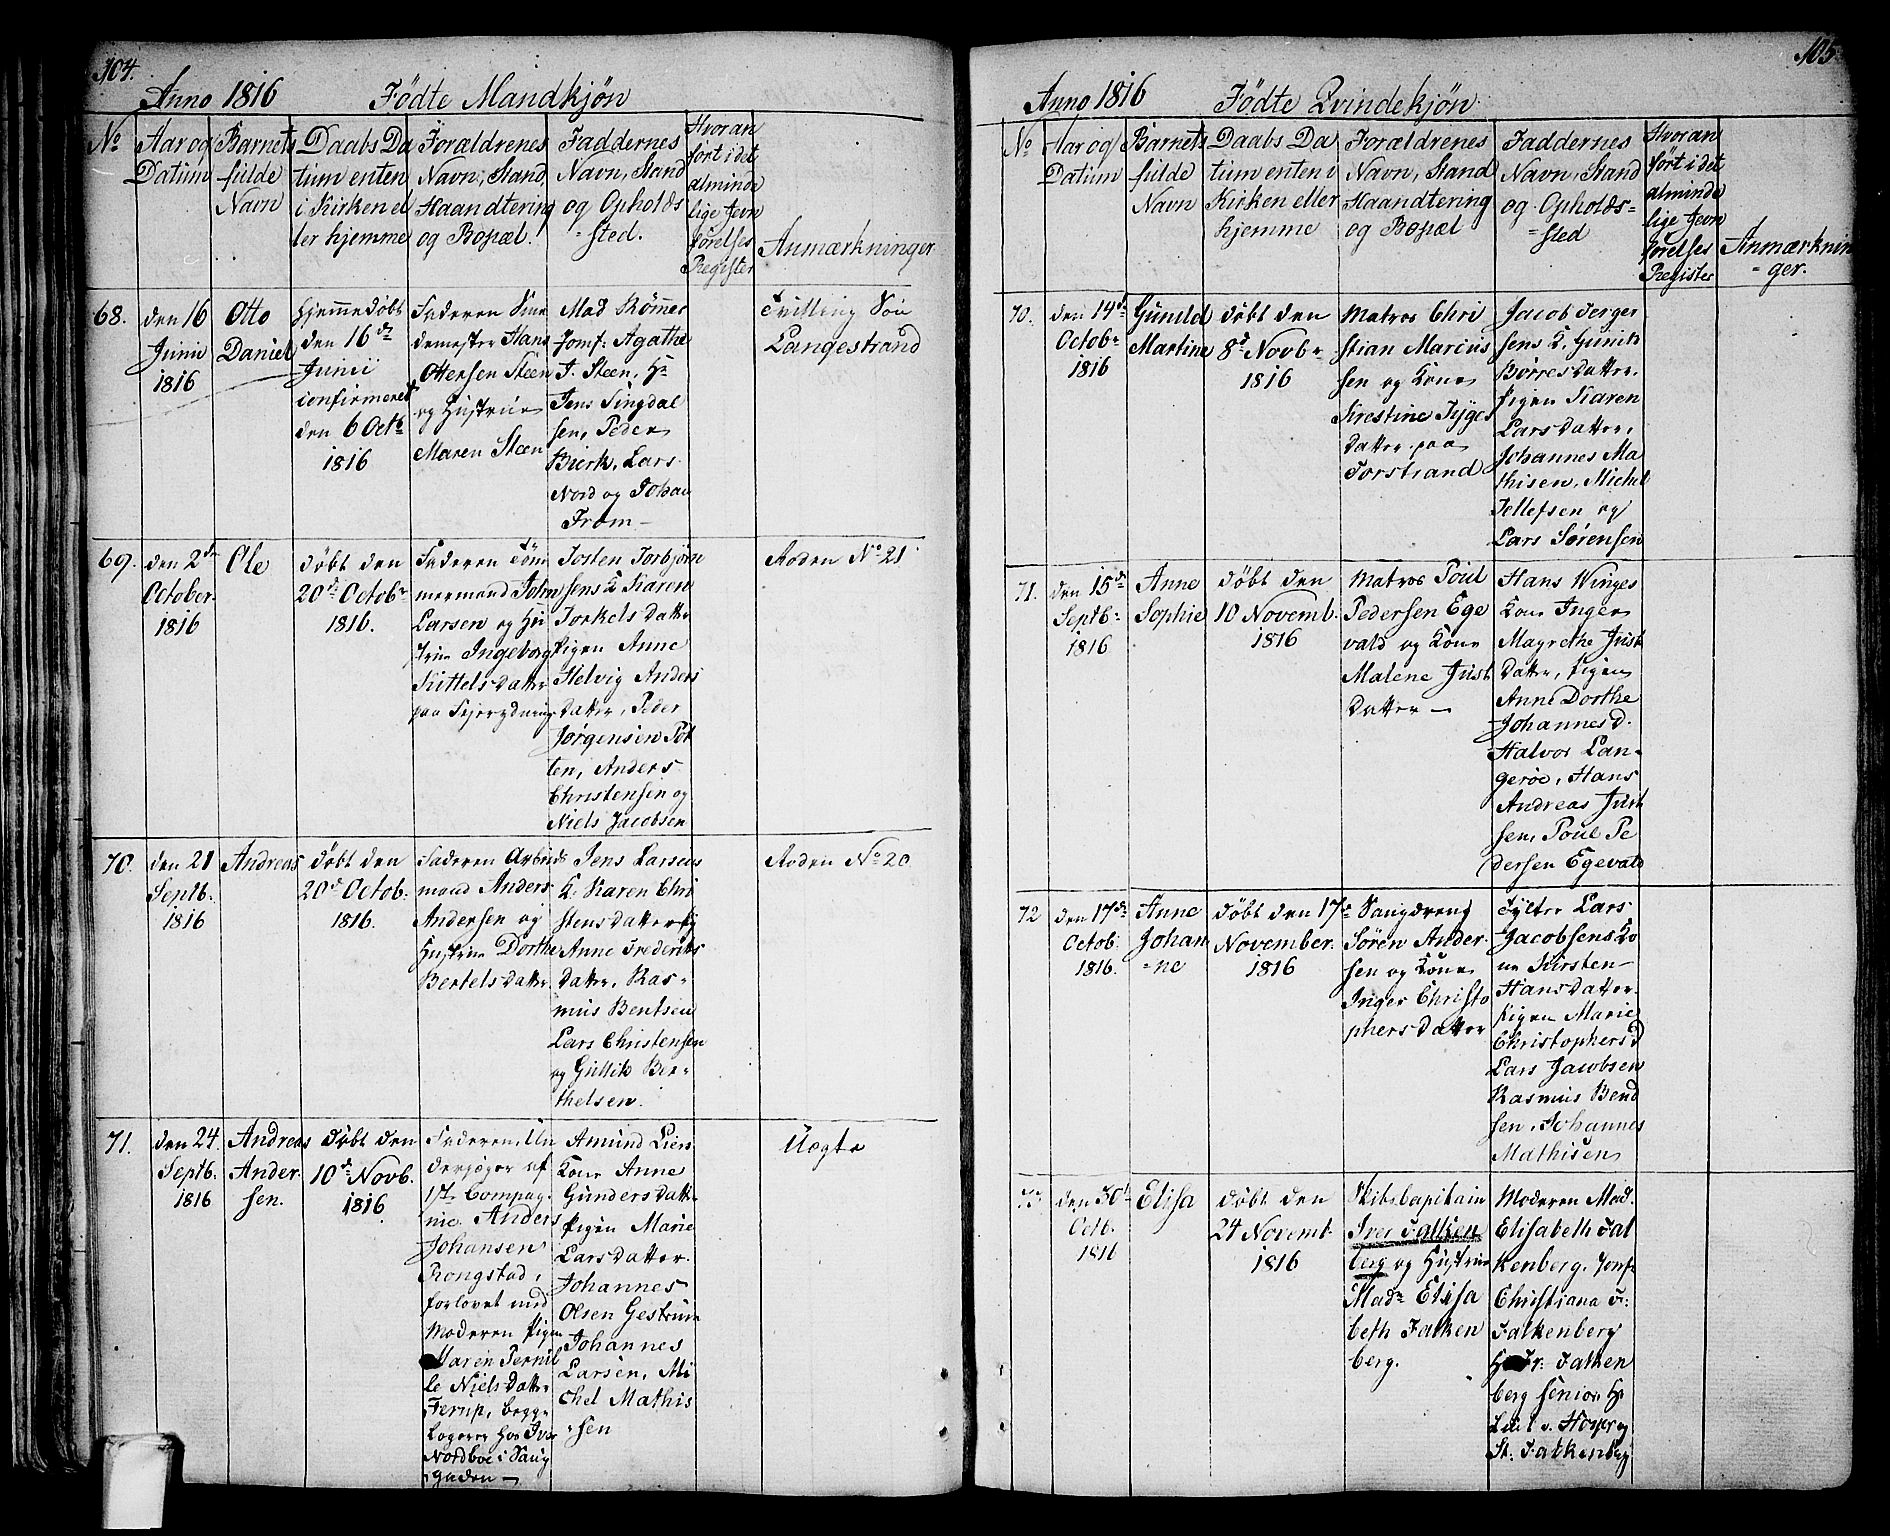 104.
Anno 1816 Fødte Mandkjøn
No
Aar og
Datum
Barnets
fulde
Navn
Daabs Da
tum enten
i Kirken el
ler hjemme
Forældrenes
Navn, Stand,
Haandtering
og Bopæl.
Faddernes
Navn, Stand
og Opholds
=sted.
Hvor an
ført i det
alminde
lige Jevn
førelses
Register
Anmærkninger
68.
den 16
Junii
1816
Otto
Daniel
hjemmedøbt
den 16de
Junii
confirmeret
den 6 Octb
1816
Faderen
demester Hans
Ottersen Steen
og Hustrue
Maren Steen
Mad Rømmer
Jomf: Agathe
J. Steen, Hr
Jens Singdal
sen, Peder
Bierk, Lars
Nord og Johan
From—
Tvilling Søn
Langestrand
69.
den 2de
October.
1816
Ole
døbt den
20de Octobr
1816.
Faderen Tøm
mermand John
Larsen og Hu
strue Ingeborg
Kittelsdatter
paa
Tosten Torbjørn
sens K Karen
Torkelsdatter
Pigen Anne
Helvig Anders
datter, Peder
Jørgensen Pot
ten, Anders
Christensen og
Niels Jacobsen
Anden No 21
70.
den 21
Septb.
1816
Andreas
døbt den
20de Octob.
1816.
Faderen Arbeids
mand Anders
Andersen og
Hustrue Dorthe
Bertelsdatter
Jens Larsens
K. Karen Chri
stensdatter Pig
Anne Frederiks
datter, Ras=
mus Bentsen
Lars Christensen
og Gullik Ber=
thelsen.
Anden No 20
71.
den 24.
Septb.
1816
Andreas
Ander
sen.
døbt den
10de Novb.
1816
Faderen, Un
derjæger af
1ste Compag
nie Anders
Johansen
Rongstad,
forlovet med
Moderen Pigen
Maren Pernil
le Nielsdatter
Ferup, begge
Logerer hos Iver
Nordboe i Laug
gaden—
Amund Lien
Kone Anne
Gundersdatter
Pigen Marie
Larsdatter.
Johannes
Olsen Gestrum
Johannes
Larsen, Mi
chel Mathis
=sen
Uægte
105.
Anno 1816 Fødte Qvindekjøn
No
Aar og
Datum
Barnets
fulde
Navn
Daabs Da
tum enten i
Kirken eller
hjemme
Forældrenes
Navn, Stand
Haandtering
og Bopæl
Faddernes
Navn, Stand
og Opholds=
=sted
Hvor an
ført i det
alminde
lige Jevn
førelses
Register
Anmærknin
=ger.
70.
den 14de
Octobr
1816
Gunild
Martine
døbt den
8de Novbr
1816
Matros Chri
stian Marcus
sen og Kone
Kirestine Tyges
datter paa
Torstrand
Jacob Jerger
sens K. Gunild
Børresdatter.
Pigen Karen
Larsdatter,
Johannes Ma
thisen, Michel
Tellefsen og
Lars Sørensen
71.
den 15de
Septb:
1816
Anne
Sophie
døbt den
10 Novemb.
1816
Matros Poul
Pedersen Ege
vald og Kone
Malene Just
datter—
Hans Winges
Kone Inger
Magrethe Just
datter, Pigen
Anne Dorthe
Johannesd.
Halvor Lan=
gerøe, Hans
Andreas Just
sen, Poul Pe
dersen Egevald
72
den 17de
Octob.
1816.
Anne
Johan
=ne
døbt den 17de
November.
1816
Vaugdreng
Søren Ander
sen og Kone
Inger Christo
phersdatter
Fyltr Lars
Jacobsens Ko
ne Kirsten
Hansdatter.
Pigen Marie
Christophersd
Lars Jacobsen
Rasmus Bend
sen, Johannes
Mathisen
73.
den 30te
Octb.
1816
Elisa
døbt den
24 Novemb.
1816
Skibs Capitain
Iver Falken
berg og Hustrue
Made Elisa
beth Falken
berg.
Moderen Mad.
Elisabeth Fal
kenberg. Jomfr
Christiana v:
Falkenberg
Hr Fr: Falken
berg senior Hr
Lieut v. og
St. Falkenberg